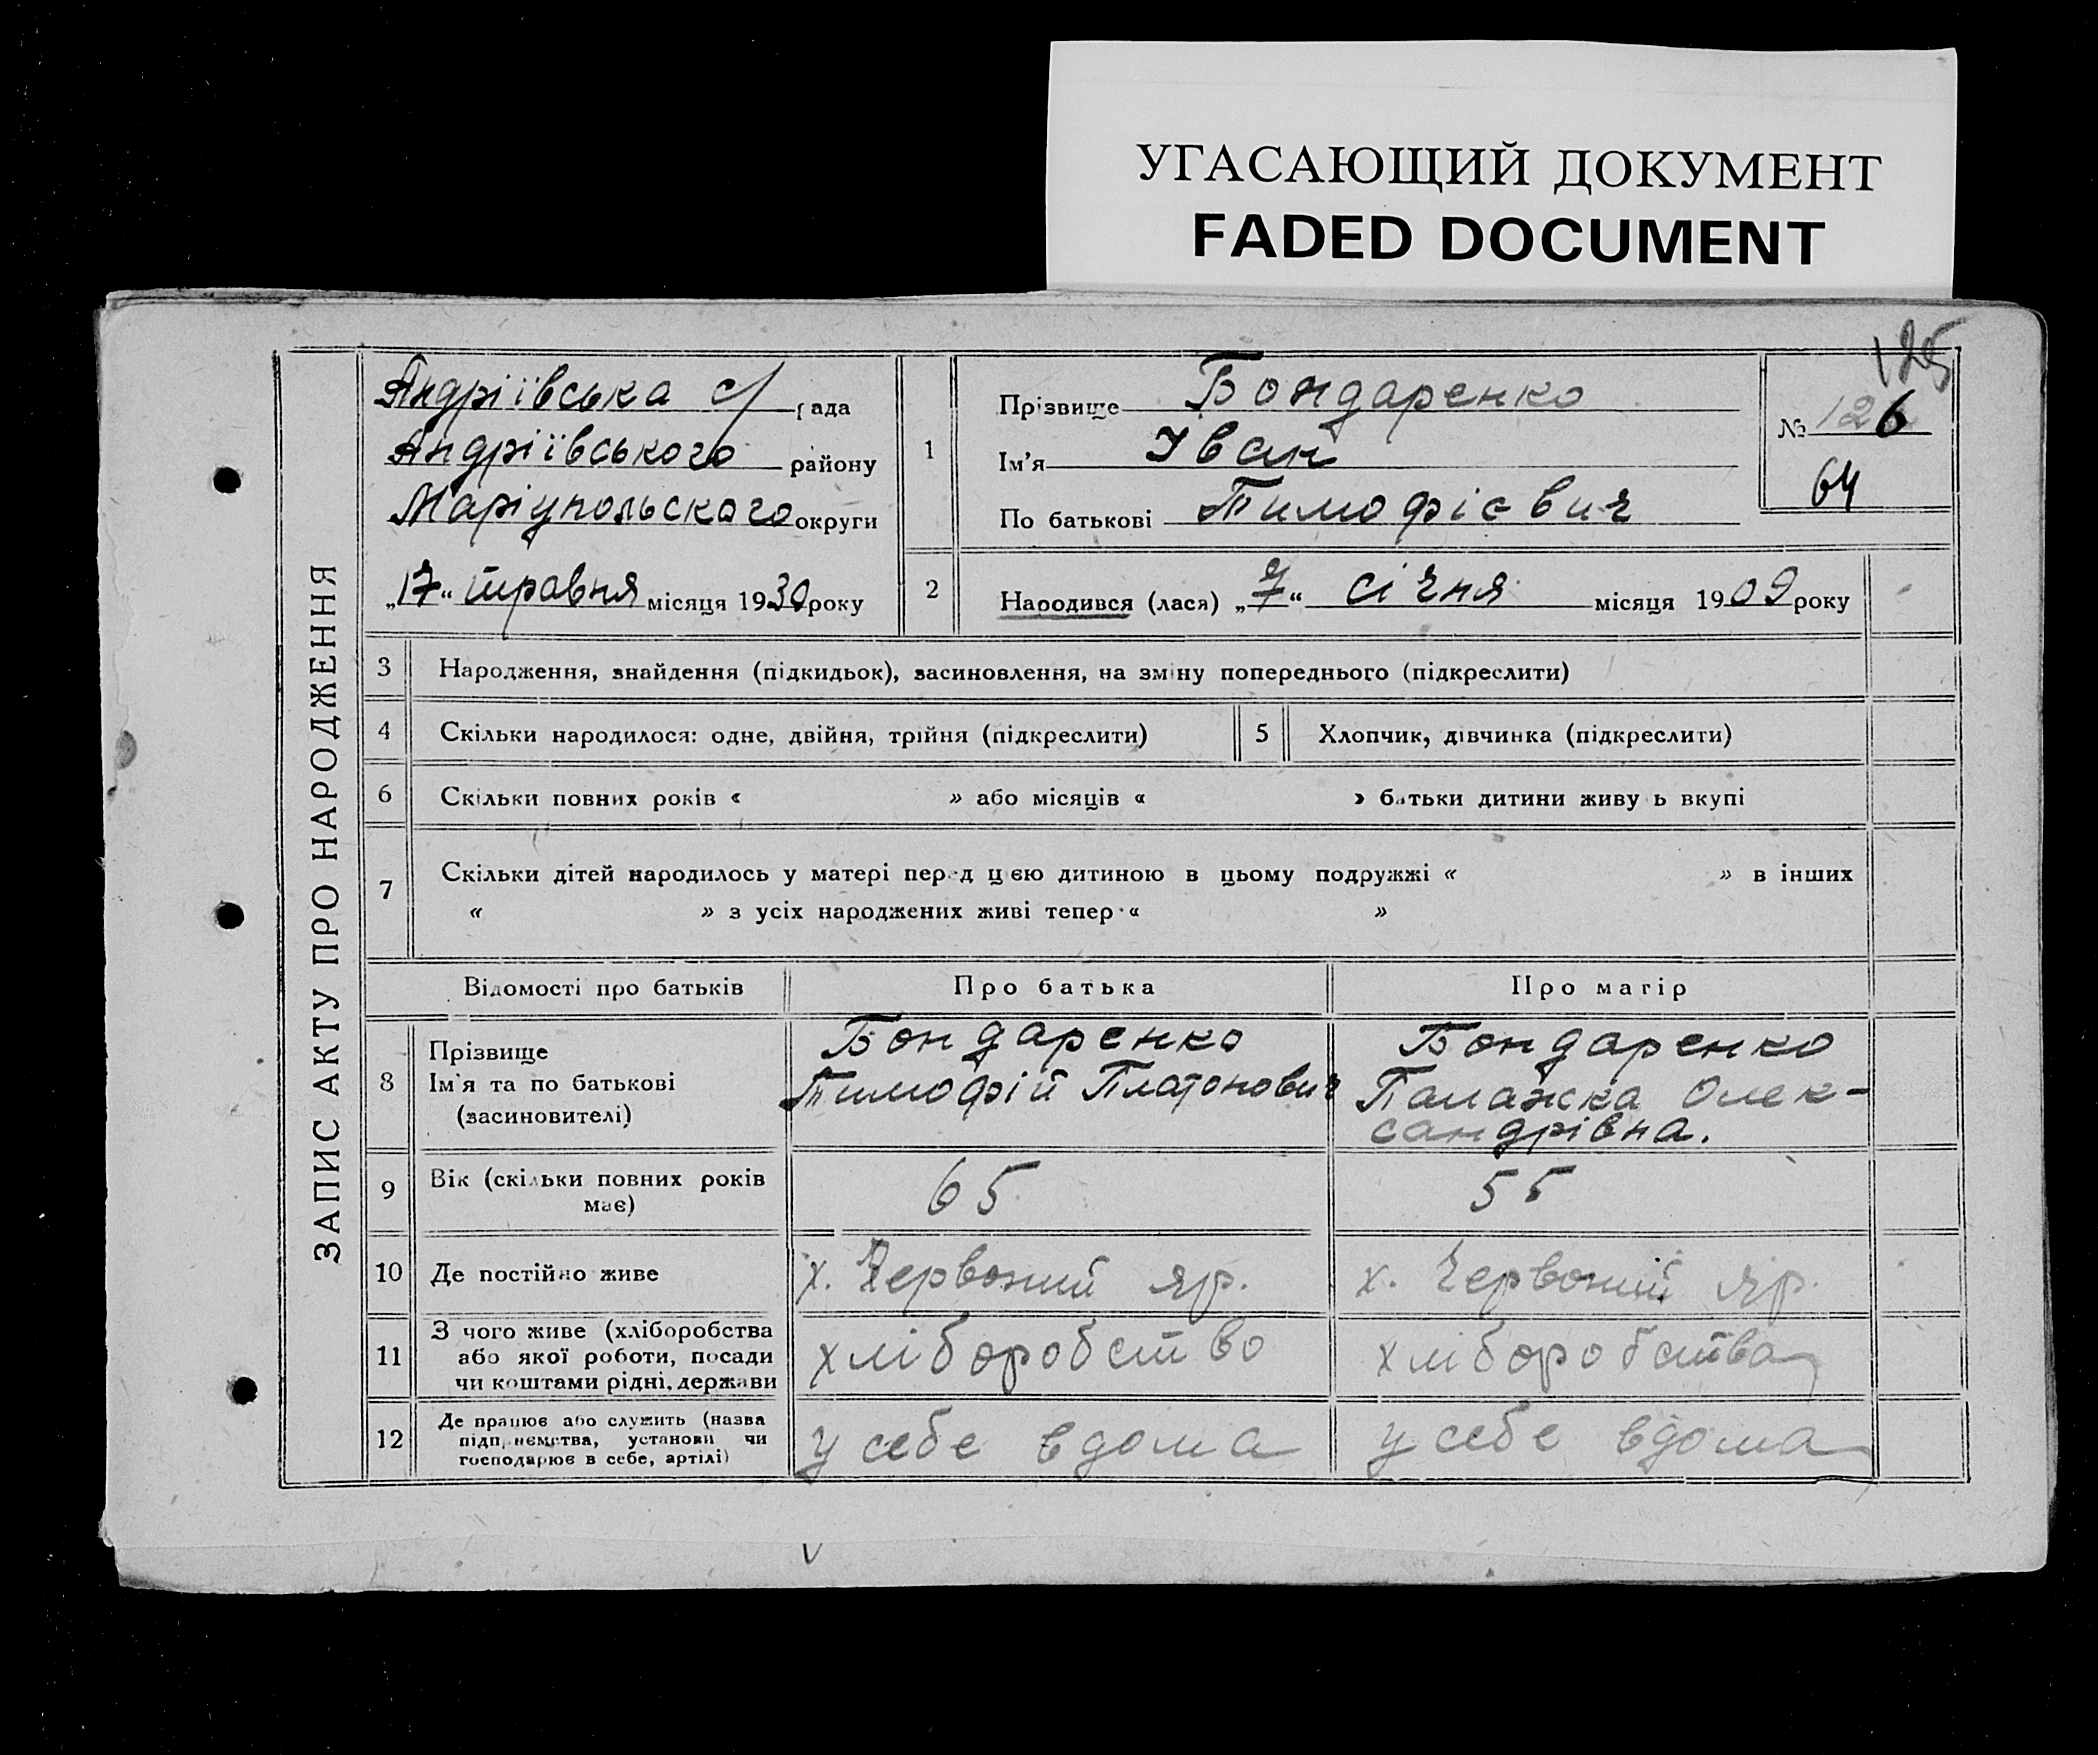 УГАСАЮЩИЙ ДОКУМЕНТ
FADED DOCUMENT
125
ЗАПИС АКТУ ПРО НАРОДЖЕННЯ
Андріївська с/ рада
Андріївського району
Маріупольського округи
„17“ травня місяця 1930 року
1
Прізвище Бондаренко
Ім'я Іван
По батькові Тимофієвич
№ 126
64
2 Народився (лася) „7“ січня місяця 1909 року
3 Народження, знайдення (підкидьок), засиновлення, на зміну попереднього (підкреслити)
4 Скільки народилося: одне, двійня, трійня (підкреслити) 5 Хлопчик, дівчинка (підкреслити)
6 Скільки повних років « » або місяців « » батьки дитини живуть вкупі
7 Скільки дітей народилось у матері перед цією дитиною в цьому подружжі « » в інших
« » з усіх народжених живі тепер « »
Відомості про батьків Про батька Про матір
8 Прізвище
Ім'я та по батькові
(засиновителі)
Бондаренко
Тимофій Платонович
Бондаренко
Палажка Олек-
сандрівна.
9 Вік (скільки повних років
має)
65 55
10 Де постійно живе х. Червоний яр. х. Червоний яр.
11 З чого живе (хліборобства
або якої роботи, посади
чи коштами рідні, держави
хліборобство хліборобства
12 Де працює або служить (назва
підприємства, установи чи
господарює в себе, артілі)
у себе вдома у себе вдома
V